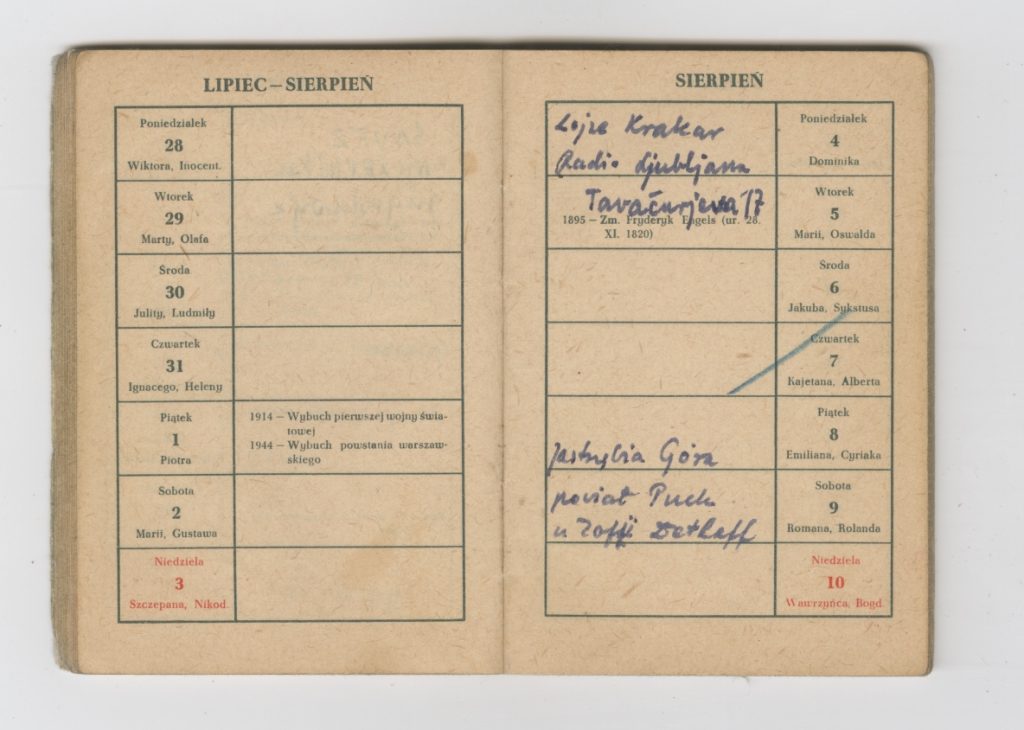 LIPIEC—SIERPIEŃ
Poniedziałek
28
Wiktora, Inocent.
Wtorek
29
Marty, Olafa
Środa
30
Julity, Ludmiły
Czwartek
31
Ignacego, Heleny
Piątek
1
Piotra
1914 — Wybuch pierwszej wojny świa-
towej
1944 — Wybuch powstania warszaw-
skiego
Sobota
2
Marii, Gustawa
Niedziela
3
Szczepana, Nikod.
SIERPIEŃ
Lojze Krakar
Radio Ljubljana
Poniedziałek
4
Dominika
Tavčarjeva 17
1895 — Zm. Fryderyk Engels (ur. 28.
XI. 1820)
Wtorek
5
Marii, Oswalda
Środa
6
Jakuba, Sykstusa
Czwartek
7
Kajetana, Alberta
Jastrzębia Góra
Piątek
8
Emiliana, Cyriaka
powiat Puck
u Zofji Dethloff
Sobota
9
Romana, Rolanda
Niedziela
10
Wawrzyńca, Bogd.